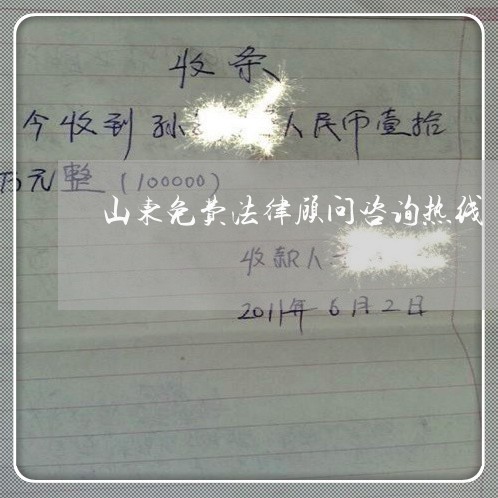 收条
今收到孙 人民币壹拾
万元整(100000)
山东免费法律顾问咨询热线
收款人
2011年6月2日